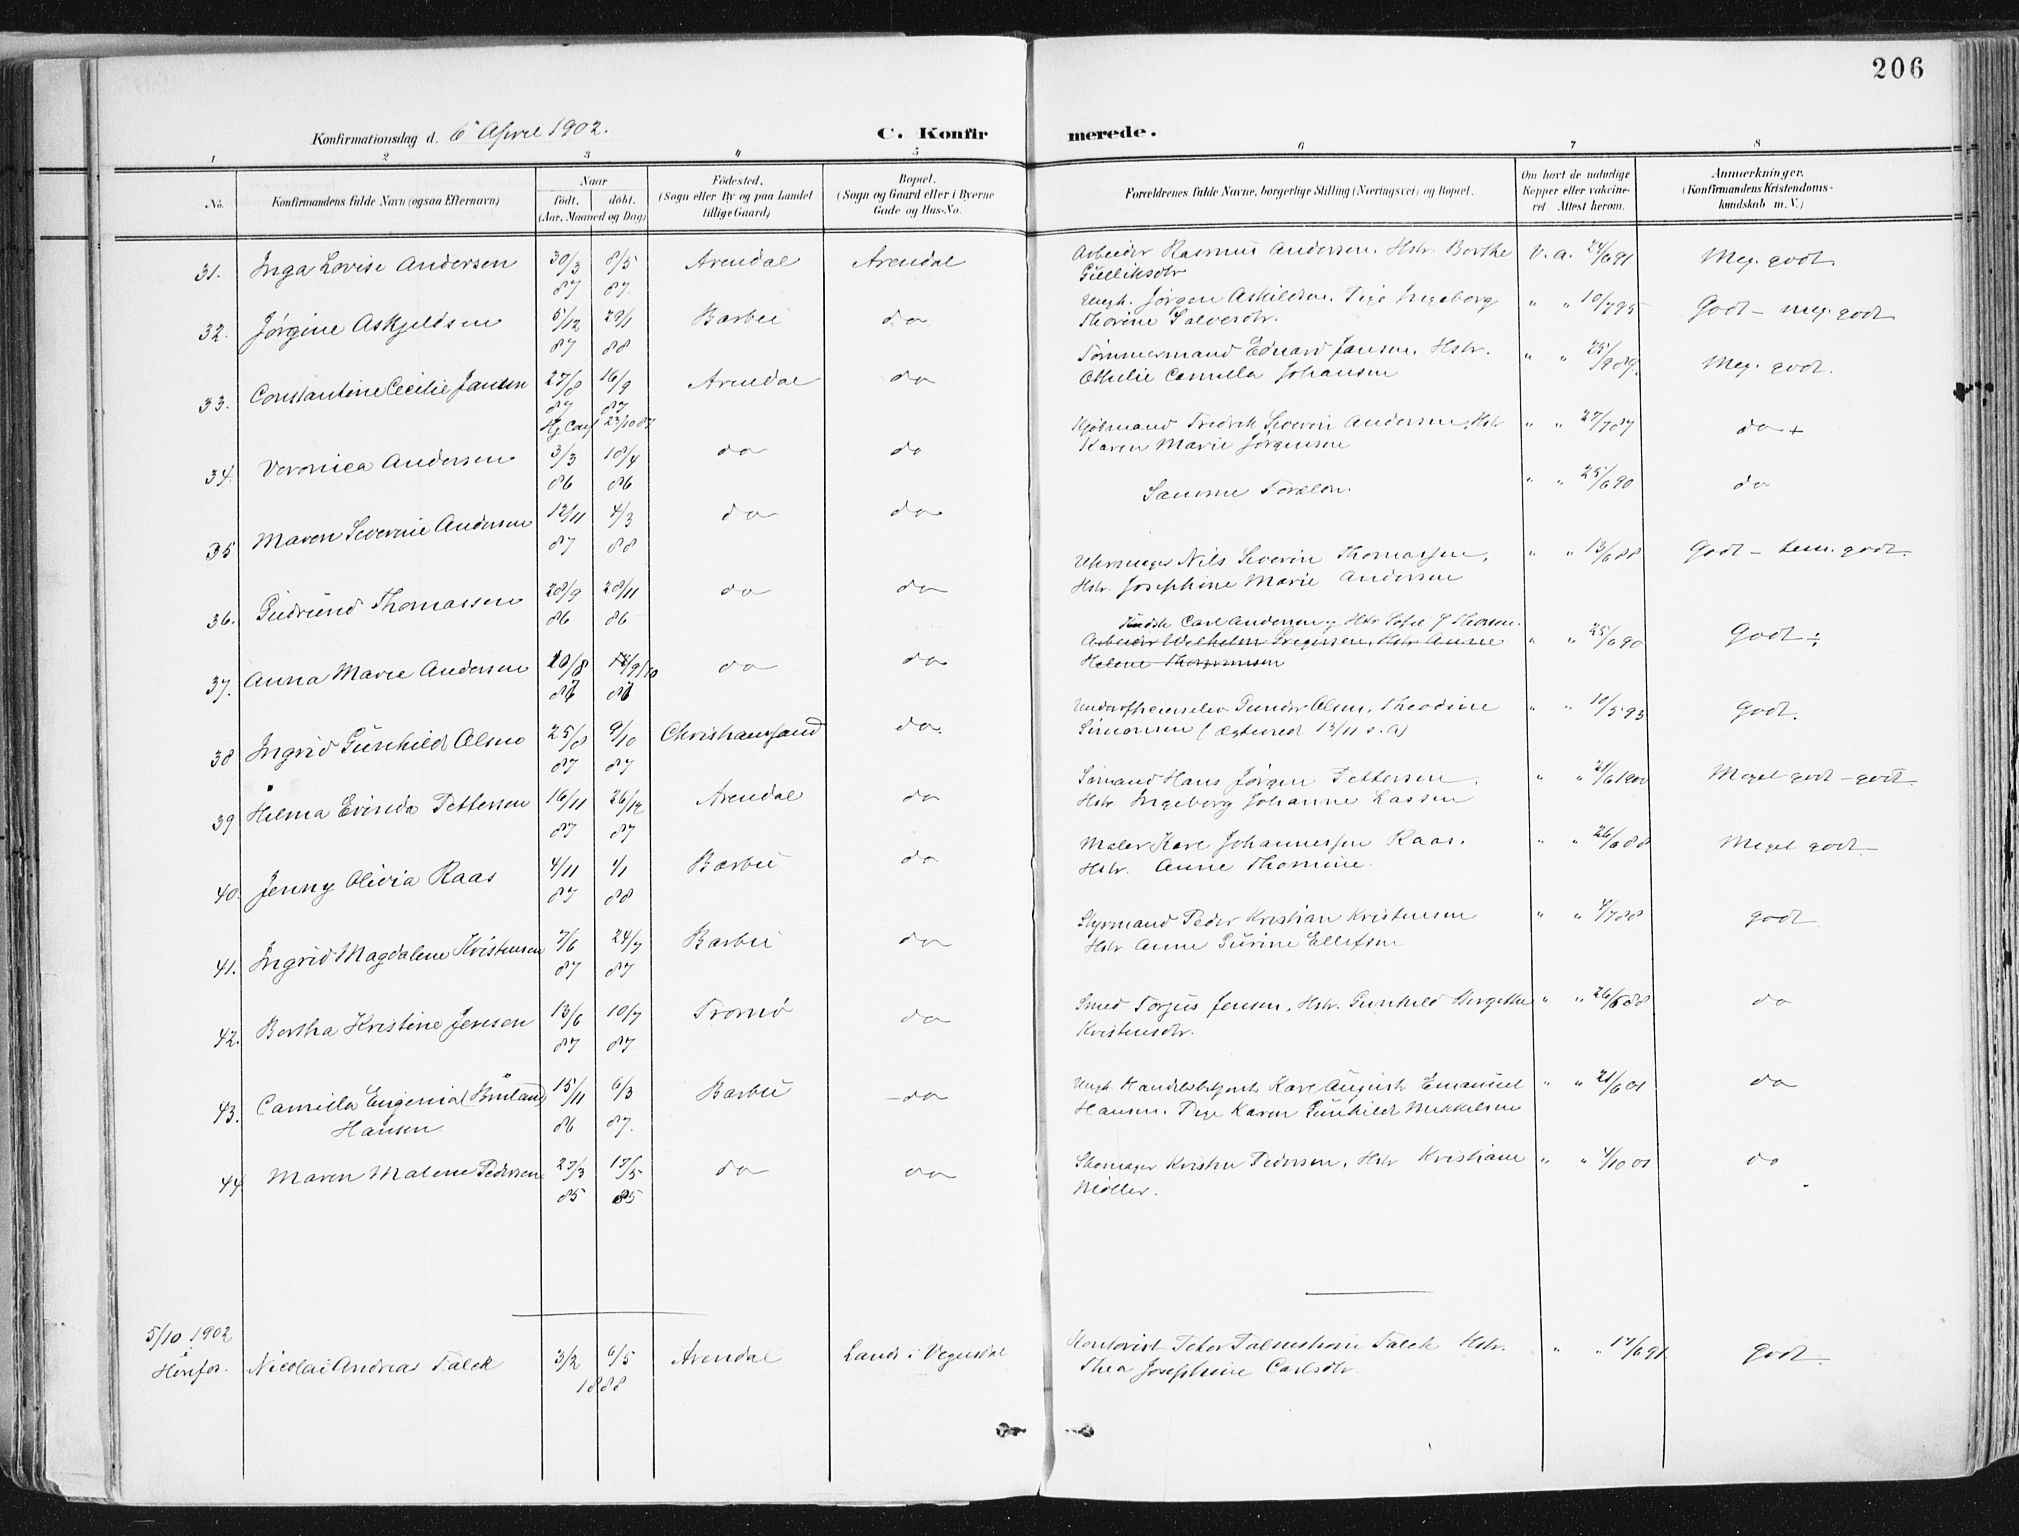 206
Konfirmationsdag d. 6te April 1902. C. Konfirmerede.
1 2 3 4 5 6 7 8
No.
Konfirmandens fulde Navn (ogsaa Efternavn)
Naar
født. døbt.
(Aar, Maaned og Dag)
Fødested.
(Sogn eller By og paa Landet
tillige Gaard)
Bopæl.
(Sogn og Gaard eller i Byerne
Gade og Hus-No.
Forældrenes fulde Navne, borgerlige Stilling (Næringsvei) og Bopæl.
Om havt de naturlige
Kopper eller vakcine-
ret Attest herom.
Anmærkninger.
(Konfirmandens Kristendoms-
kundskab m. V.)
31. Inga Lovise Andersen 30/3 87 8/5 87. Arendal Arendal Arbeider Rasmus Andersen, Hstr. Berthe
Gulliksdtr V. a. 24/6 91 Meg. godt.
32. Jørgine Askjeldsen 5/12 87 29/1 88 Barbu do Ungk. Jørgen Askildsen, Pige Ingeborg
Thorine Salvesdtr. " " 10/7 95 Godt - meg. godt
33. Constantine Cecilie Jansen 27/8 87 16/9 87 Arendal do Tømmermand Eduard Jansen, Hstr.
Othilie Camilla Johansen " " 25/9 87. Meg. godt.
23/10 87
34. Veronica Andersen 3/3 86 18/4 86 do do Kjøbmand Fredrik Severin Andersen, Hstr
Karen Marie Jørgensen " " 27/7 87 do +
35 Maren Severine Andersen 12/11 87 4/3 88 do do Samme Forældre. " " 25/6 90 do
36. Gudrund Thomassen 28/9 86 28/11 86 do do Uhrmager Nils Severin Thomassen,
Hstr. Josephine Marie Andersen " " 13/6 88 Godt - tem. godt.
37. Anna Marie Andersen 87 87 do do Carl Andersen, Hstr
Arbeider Wilhelm Hstr Anne
Helene " " 25/6 90 Godt ÷
38 Ingrid Gunhild Olsen 25/8 87 9/10 87 Christianssand do. Gunder Olsen, Theodine
Simonsen (Egteviet 13/11 s. a) " " 10/5 93 Godt.
39 Hilma Evinda Pettersen 16/11 87 26/12 87 Arendal do Sømand Hans Jørgen Pettersen
Hstr. Ingeborg Johanne Lassen " " 21/6 1900 Meget godt - godt.
40. Jenny Olivia Raas 4/11 87 1/1 88 Barbu do Maler Karl Johannessen Raas.
Hstr. Anne Thomine. " " 26/6 88 Meget godt
41. Ingrid Magdalene Kristensen 7/6 87 24/7 87 Barbu do Styrmand Peder Kristian Kristensen
Hstr Anne Gurine Ellefsen " " 4/7 88 godt
42. Bertha Kristine Jensen 13/6 87 10/7 87 Tromø do Smed Torjus Jensen, Hstr. Gunhild Birgithe
Kristensdtr. " " 26/6 88 do
43. Camilla Eugenia
Hansen 15/11 86 6/3 87. Barbu do Ungk. Handelsbetjent Karl August Emanuel
Hansen. Pige Karen Gunhild Mikkelsen " " 21/6 01 do
44 Maren Malene Pedersen 27/3 85 17/5 85 do do Skomager Kristen Pedersen, Hstr. Kristiane
Møller. " " 4/10 01 do
5/10 1902
i
Herefos. Nicolai Andreas Falck 3/2 6/5 1888 Arendal Lands i Vegusdal Kontorist Peter Falck Hstr.
Thea Josephine Carlsdtr. " " 17/6 91 godt.